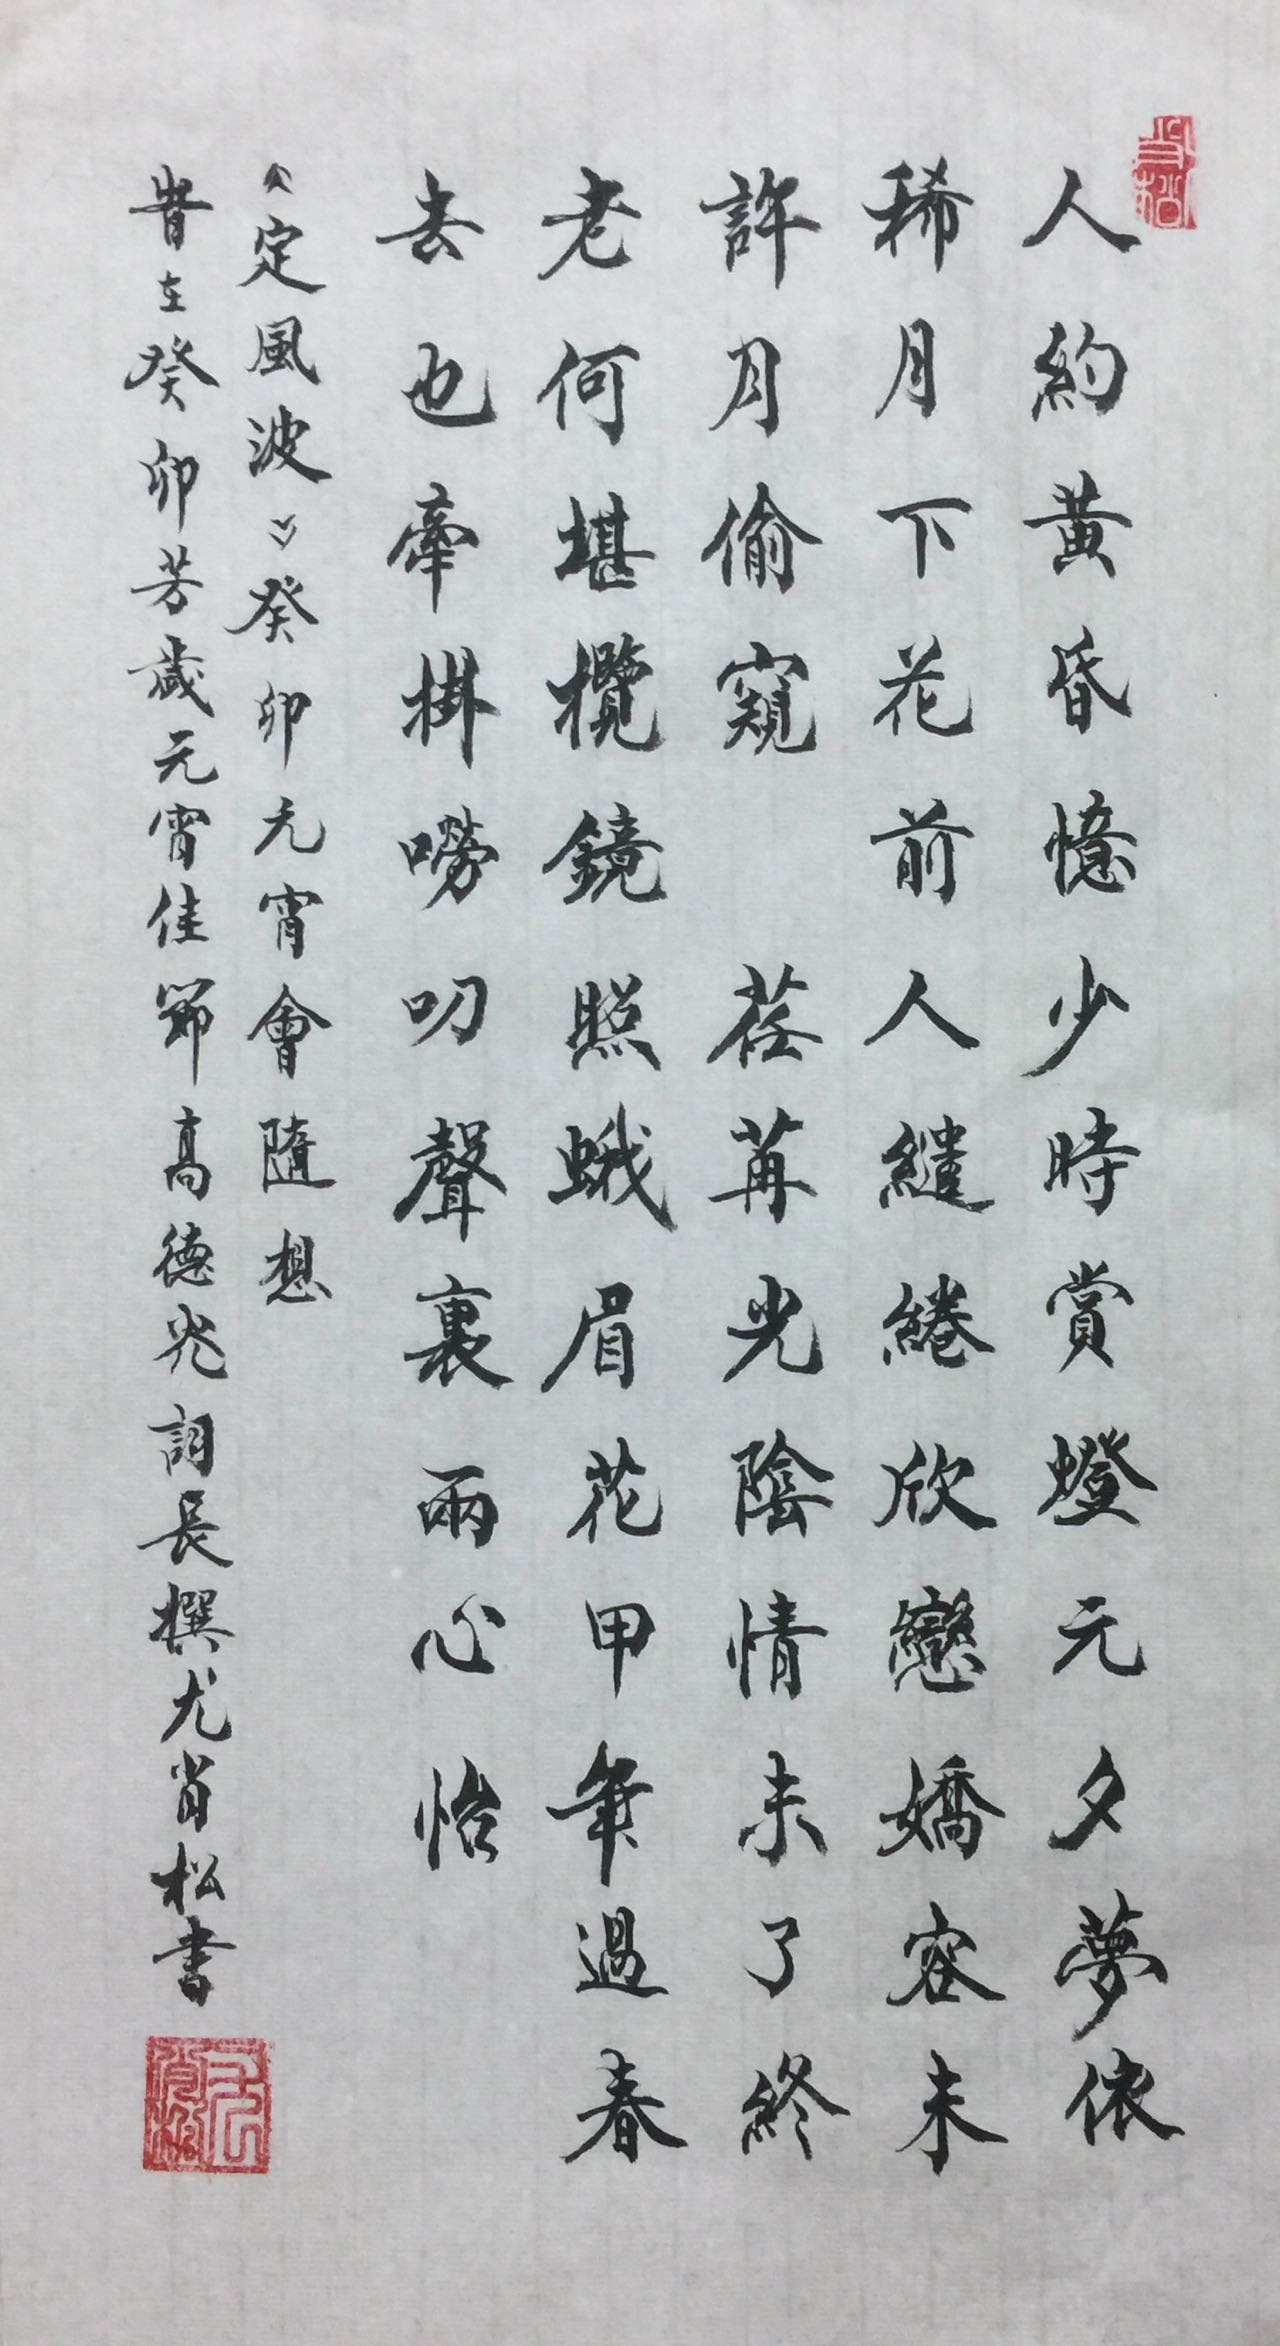 人約黃昏憶少時賞燈元夕夢依
稀月下花前人繾綣欣戀嬌容未
許月偷窺　荏苒光陰情未了終
老何堪攬鏡照蛾眉花甲年過春
去也牽掛嘮叨聲裏兩心怡
《定風波》癸卯元宵會隨想
昔在癸卯芳歲元宵佳節高德兆詞長撰尤肖松書